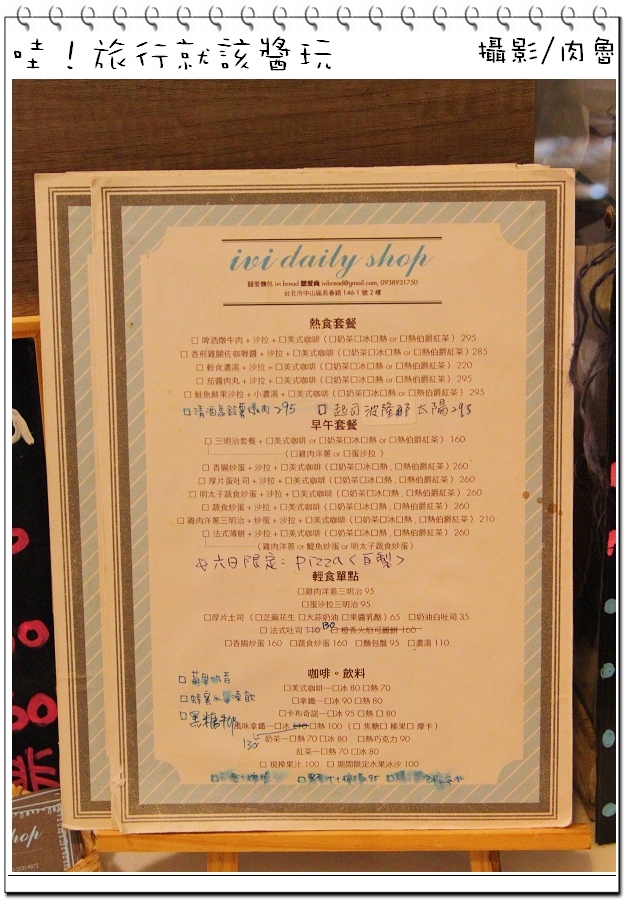 哇！旅行就該醬玩
攝影/肉魯
ivi daily shop
囍愛麵包 ivi bread 囍愛商 ivibread@gmail.com, 0938931750
台北市中山區長春路 146-1 號 2 樓
熱食套餐
□ 啤酒燉牛肉 + 沙拉 + □美式咖啡（□奶茶□冰□熱 or □熱伯爵紅茶） 295
□ 香煎雞腿佐咖喱醬 + 沙拉 + □美式咖啡（□奶茶□冰□熱 or □熱伯爵紅茶）285
□ 輕食濃湯 + 沙拉 + □美式咖啡（□奶茶□冰□熱 or □熱伯爵紅茶） 220
□ 茄醬肉丸 + 沙拉 + □美式咖啡（□奶茶□冰□熱 or □熱伯爵紅茶） 295
□ 鮭魚鮮果沙拉 + 小濃湯 + □美式咖啡（□奶茶□冰□熱 or □熱伯爵紅茶） 295
□清酒馬鈴薯燉肉295 □ 起司波隆那太陽295
早午套餐
□ 三明治套餐 + □美式咖啡 or □奶茶□冰□熱 or □熱伯爵紅茶） 160
（□雞肉洋蔥 or □蛋沙拉 ）
□ 香腸炒蛋 + 沙拉 + □美式咖啡（□奶茶□冰□熱 , □熱伯爵紅茶）260
□ 厚片蛋吐司 + 沙拉 + □美式咖啡（□奶茶□冰□熱 , □熱伯爵紅茶）260
□ 明太子蔬食炒蛋 + 沙拉 + □美式咖啡（□奶茶□冰□熱 , □熱伯爵紅茶） 260
□ 蔬食炒蛋 + 沙拉 + □美式咖啡（□奶茶□冰□熱 , □熱伯爵紅茶） 260
□ 雞肉洋蔥三明治 + 炒蛋 + 沙拉 + □美式咖啡（□奶茶□冰□熱 , □熱伯爵紅茶） 210
□ 法式薄餅 + 沙拉 + □美式咖啡（□奶茶□冰□熱 , □熱伯爵紅茶） 260
（雞肉洋蔥 or 鯷魚炒蛋 or 明太子蔬食炒蛋）
六日限定：pizza<自製>
輕食單點
□雞肉洋蔥三明治 95
□蛋沙拉三明治 95
□厚片土司（□芝麻花生 □大蒜奶油 □果醬乳酪）65 □奶油白吐司 35
□ 法式吐司 110 130 □ 橙香火焰可麗餅 160
□香腸炒蛋 160 □蔬食炒蛋 160 □麵包盤 95 □濃湯 110
咖啡。飲料
□蘋果奶昔
□美式咖啡—□冰 80 □熱 70
□蜂蜜水果凍飲
□拿鐵—□冰 90 □熱 80
□黑糖
□卡布奇諾—□冰 95 □熱 □ 80
風味拿鐵—□冰 110 □熱 100 （□ 焦糖□ 榛果□ 摩卡）
130
奶茶—□熱 70 □冰 80 □熱巧克力 90
紅茶—□熱 70 □冰 80
□ 現榨果汁 100 □ 期間限定水果冰沙 100
hop